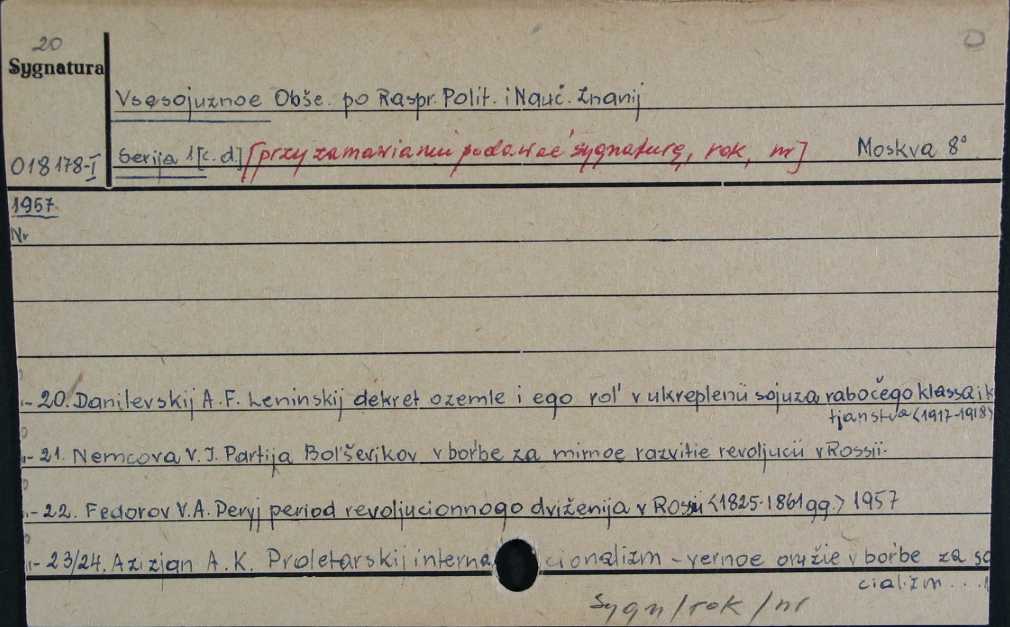 20
Sygnatura
Vsesojuznoe Obšč. po Raspr. Polit. i Nauč. Znanij
018178-I
Serija 1 [c. d.] [przy zamawianiu podawać sygnaturę, rok, nr] Moskva 8°
1957
Nr
- 20. Danilevskij A. F. Leninskij dekret o zemle i ego rol' v ukreplenii sojuza rabočego klassa i k
tjanstva <1917-1918>
- 21. Nemcova V. I. Partija Bol'ševikov v bor'be za mirnoe razvitie revoljucii v Rossii.
- 22. Fedorov V. A. Pervyj period revoljucionnogo dviženija v Rossii <1825-1861 gg.> 1957
- 23/24. Azizjan A. K. Proletarskij interna cionalizm - vernoe oružie v bor'be za so
cializm...
Sygn/rok/nr